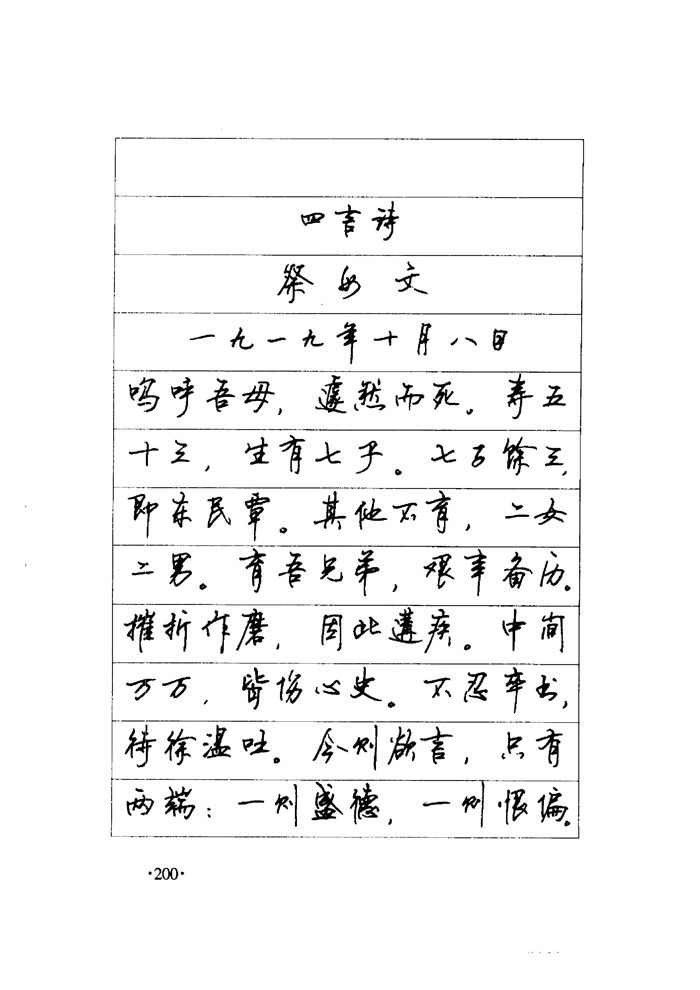 四言诗
祭母文
一九一九年十月八日
呜呼吾母，遽然而死。寿五
十三，生有七子。七子馀三，
即东民覃。其他不育，二女
二男。育吾兄弟，艰辛备历。
摧折作磨，因此遘疾。中间
万万，皆伤心史。不忍卒书，
待徐温吐。今则欲言，只有
两端：一则盛德，一则恨偏。
·200·